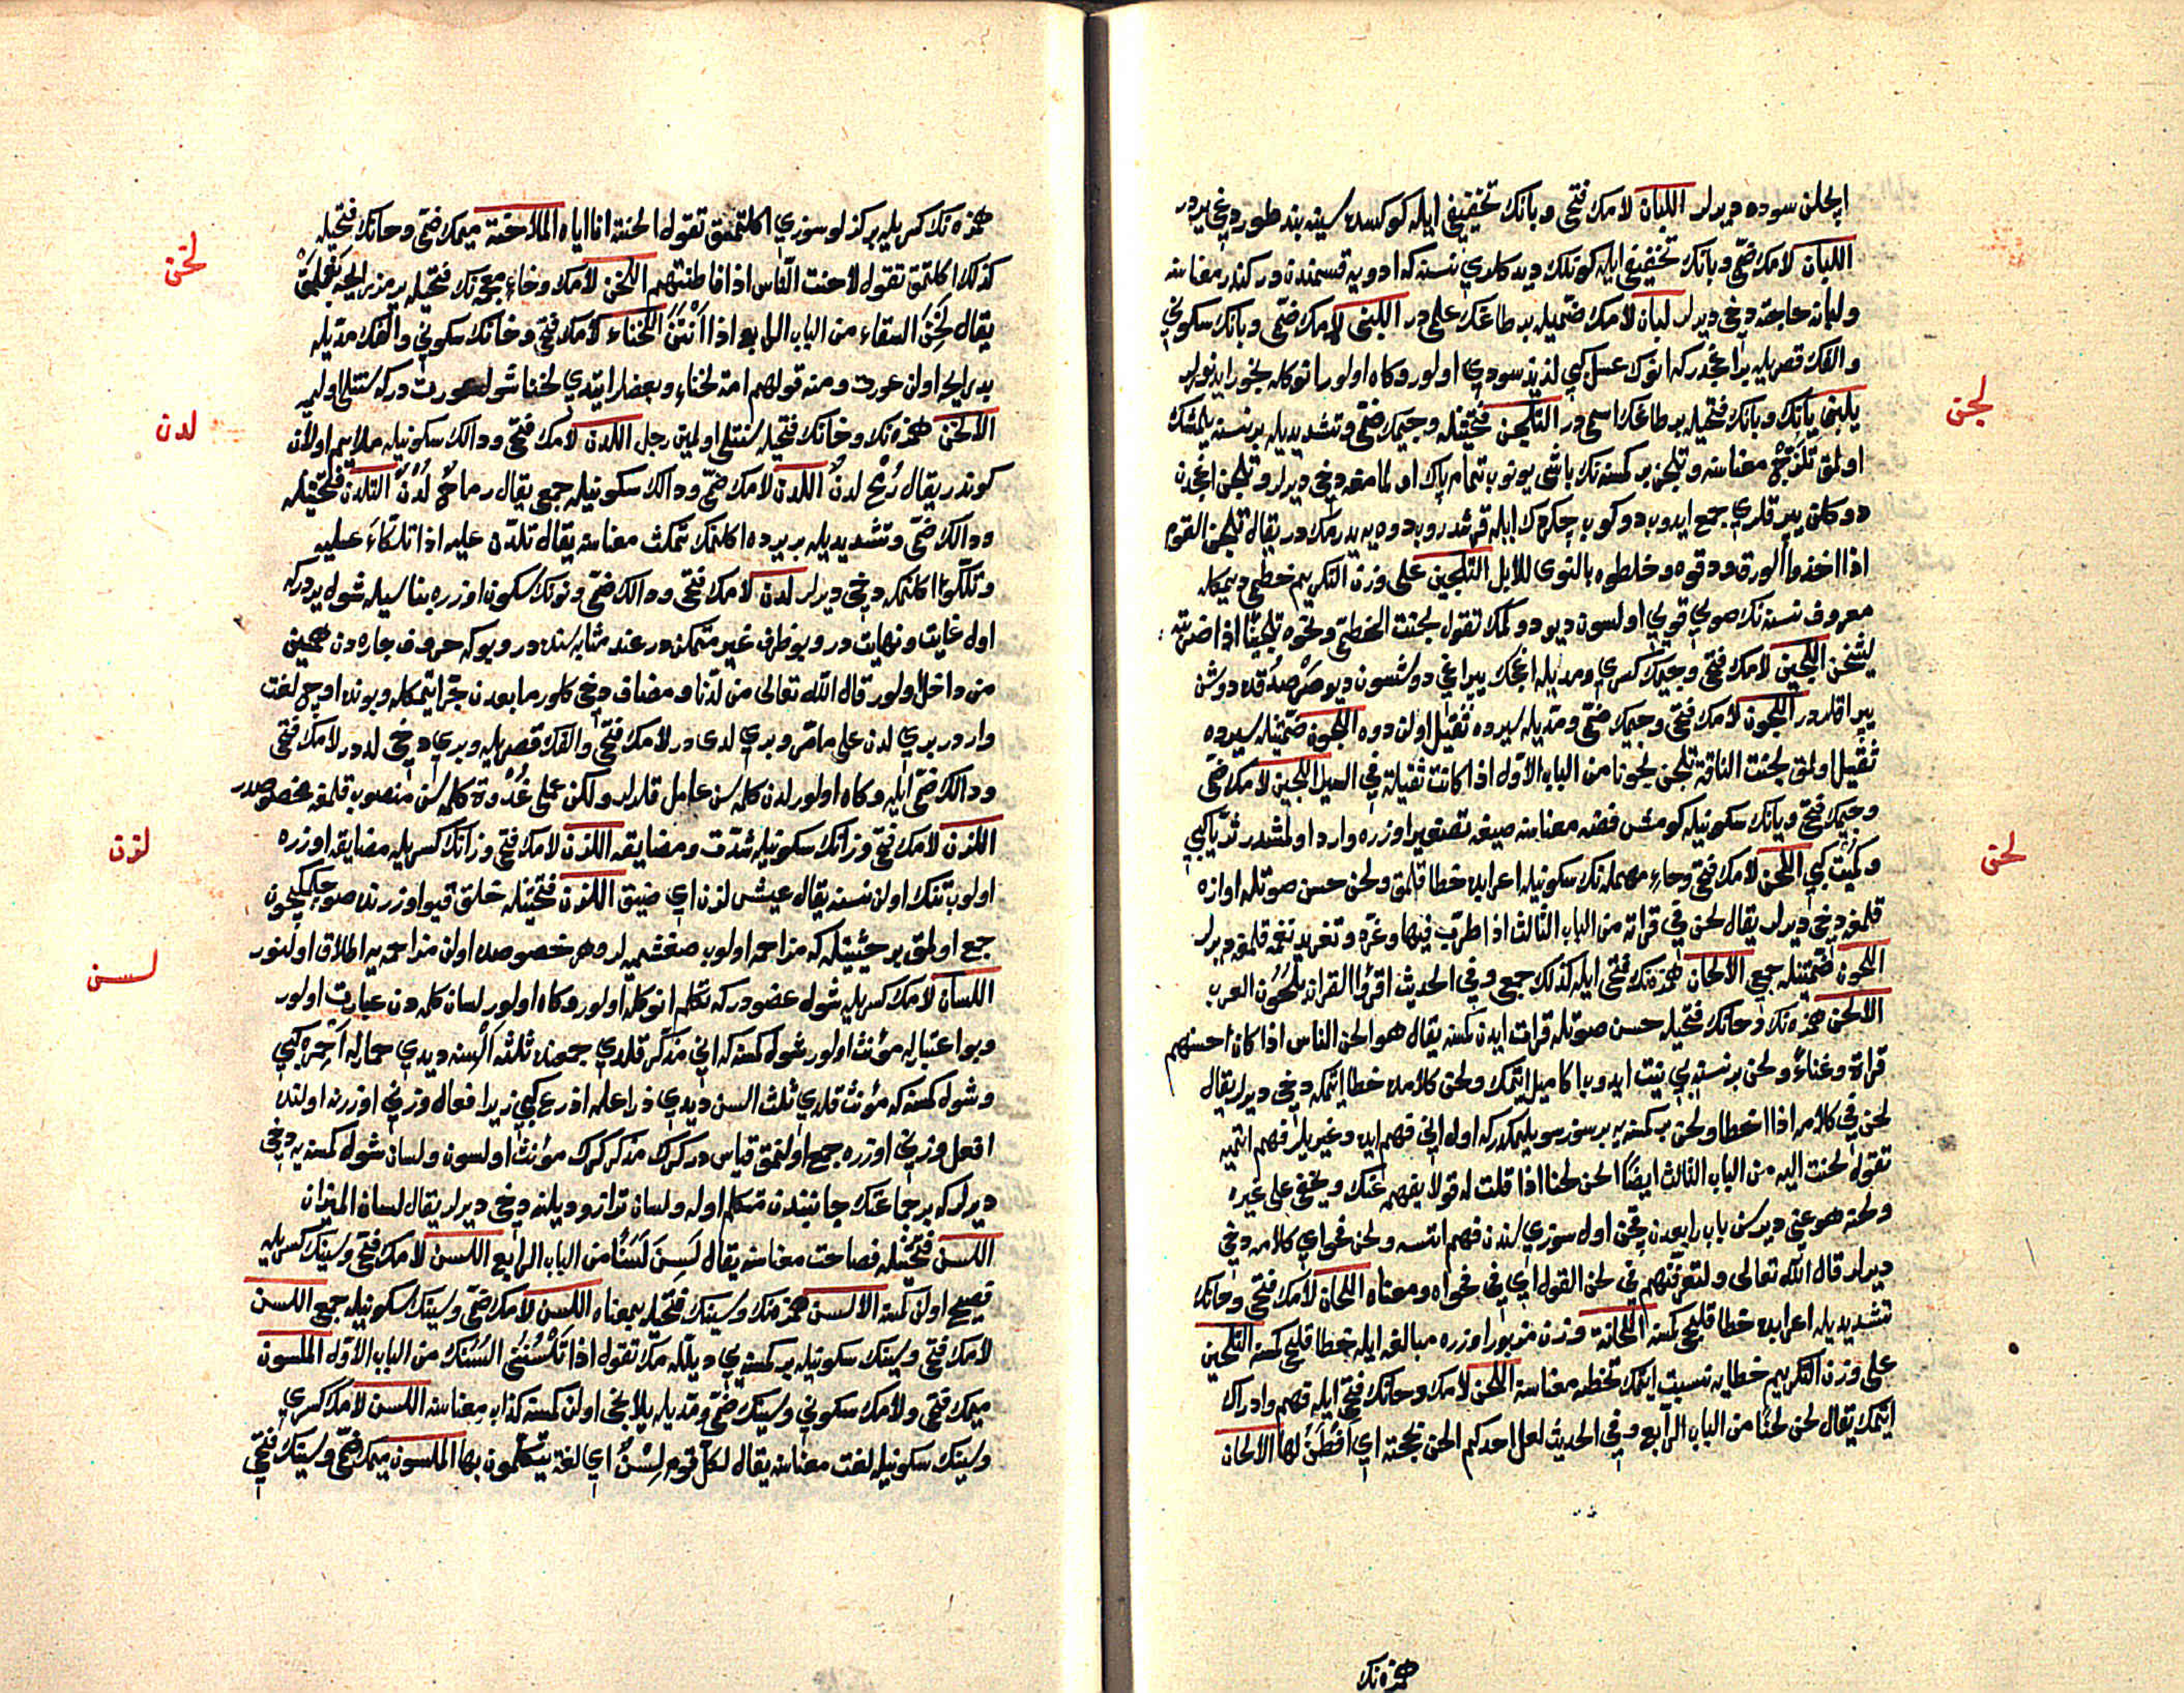 ایچلن سوده دیرلر اللبان لامك فتحی و بانك تخفیفی ایله كوكسده سینه بند طوردیغی یردر
اللبان لامك ضمی و بانك تخفیفی ایله كونلك دیدكلری نسنه كه ادویه قسمندندر كندر معناسنه
ولبانه حاجته دخی دیرلر لبان لامك ضمیله بر طاغك علمی در اللبنی لامك ضمی و بانك سكونی
والفك قصریله بر اغجدر كه انوك عسل كبی لذیذ سودی اولور وكاه اولور انوكله بخور ایدنورلر
یلبنی یانك و بانك فتحیله بر طاغك اسمی در التلجن فتحتیله و جیمك ضمی و تشدیدیله بر نسنه یلمشك
اولمق تلزج معناسنه و تلجن بر كمسنه نك باشی یونوب تمام پاك اولمامغه دخی دیرلر و تلجن اغجدن
دوكلن یپرقلری جمع ایدوب دوكوب چكردك ایله قرشدروب دوه یه یدرمكدر یقال تلجن القوم
اذا اخذوا الورق ودقوه وخلطوه بالنوی للابل التلجین علی وزن التكریم خطمی دیمكله
معروف نسنه نك صویی قویی اولسون دیو دوكمك تقول لجنت الخطمی ونحوه تلجینا اذا ضربته
لیثخن اللجین لامك فتحی و جیمك كسری و مدیله اغجك یپراغی دوشسون دیو صرصدقده دوشن
یپراقلردر اللجون لامك فتحی و جیمك ضمی و مدیله سیرده ثقیل اولن دوه اللجون ضمتینله سیرده
ثقیل اولمق لجنت الناقة تلجن لجونا من الباب الاول اذا كانت ثقیلة فی السیر اللجین لامك ضمی
وجیمك فتحی ویانك سكونیله كومش فضه معناسنه صیغه تصغیر اوزره وارد اولمشدر ثریا كبی
وكمیت كبی اللحن لامك فتحی و حاء مهمله نك سكونیله اعرابده خطا قلمق ولحن حسن صوتله اوازه
قلمغه دخی دیرلر یقال لحن فی قراته من الباب الثالث اذا طرب فیها وغرد وتغرید نغمه قلمغه دیرلر
اللحون ضمتینله جمع الالحان همزه نك فتحی ایله كذلك جمع وفی الحدیث اقرؤا القران بلحون العرب
الالحن همزه نك و حانك فتحیله حسن صوتله قرات ایدن كمسنه یقال هو الحن الناس اذا كان احسنهم
قراة وغناء ولحن بر نسنه یی نیت ایدوب اكا میل ایتمك ولحن كلامده خطا ایتمكه دخی دیرلر یقال
لحن فی كلامه اذا اخطا ولحن بر كمسنه یه بر سوز سویلمكدر كه اول انی فهم ایده وغیریلر فهم ایتمیه
تقول لحنت الیه من الباب الثالث ایضا الحن لحنا اذا قلت له قولا یفهمه عنك ویخفی علی غیره
ولحنه هو عنی دیرسن باب رابعدن یعنی اول سوزی بندن فهم ایتسه ولحن فحوای كلامه دخی
دیرلر قال الله تعالی ولتعرفنهم فی لحن القول ای فی فحواه ومعناه اللحان لامك فتحی و حانك
تشدیدیله اعرابده خطا قلیجی كمسنه اللحانة وزن مزبور اوزره مبالغه ایله خطا قلیجی كمسنه التلحین
علی وزن التكریم خطایه نسبت ایتمك تخطئه معناسنه اللحن لامك و حانك فتحی ایله فهم وادراك
ایتمك یقال لحن لحنا من الباب الرابع وفی الحدیث لعل احدكم الحن بحجته ای افطن لها الالحان
همزه نك
لجن
لحن
همزه نك كسریله بر كزلو سوزی اكلتمق تقول الحنته انا ایاه الملاحنة میمك ضمی و حانك فتحیله
كذلك اكلتمق تقول لاحنت الناس اذا فاطنتهم اللخن لامك و خاء معجمه نك فتحیله
یقال لخن السقاء من الباب الرابع اذا انتن اللخناء لامك فتحی و خانك سكونی والفك مدیله
بد رایحه اولن عورت ومنه قولهم امة لخناء وبعضلر ایتدی لخنا شول عورت دركه سنتلی اولمیه
الالخن همزه نك و خانك فتحیله سنتلی اولمین رجل اللدن لامك فتحی و دالك سكونیله ملایم اولان
كوندر یقال رمح لدن اللدن لامك ضمی و دالك سكونیله جمع یقال رماح لدن التلدن فتحتینله
ودالك ضمی و تشدیدیله بر یرده اكلنمك تمكث معناسنه یقال تلدن علیه اذا تلكاء علیه
وتلكؤ اكلنمكه دخی دیرلر لدن لامك فتحی و دالك ضمی و نونك سكون اوزره بناسیله شول یردركه
اول غایت و نهایت در و بو ظرف غیر متمكن در عند مثابه سنده در و بوكه حروف جاره دن همین
من داخل اولور قال الله تعالی من لدنا و مضاف دخی كلور مابعدن جر ایتمكله و بونده اوچ لغت
واردر بری لدن علی مامر و بری لدی در لامك فتحی و الفك قصریله و بری دخی لد در لامك فتحی
ودالك ضمی ایله وكاه اولور لدن كلمه سن عامل قلرلر ولكن علی غدوة كلمه سن منصوب قلمغه مخصوصدر
اللزن لامك فتحی و زانك سكونیله شدت و مضایقه اللزن لامك فتحی و زانك كسریله مضایقه اوزره
اولوب تنك اولن نسنه یقال عیش لزن ای ضیق اللزن فتحتینله خلق قیو اوزرنده صو چكمكیچون
جمع اولمق بر حیثیتله كه مزاحمه اولوب صغشمیه لر وهر خصوصده اولن مزاحمه یه اطلاق اولنور
اللسان لامك كسریله شول عضودر كه تكلم انوكله اولور وكاه اولور لسان كلمه دن عبارت اولور
وبو اعتبارله مؤنث اولور شول كمسنه كه انی مذكر قلدی جمعنده ثلثة السنه دیدی حمارله احمره كبی
وشول كمسنه كه مؤنث قلدی ثلث السن دیدی ذراعله اذرع كبی زیرا فعال وزنی اوزرنه اولنده
افعل وزنی اوزره جمع اولنمق قیاس در كرك مذكر كرك مؤنث اولسون ولسان شول كمسنه یه دخی
دیرلر كه بر جماعتك جانبندن متكلم اوله ولسان ترازو دیلنه دخی دیرلر یقال لسان المیزان
اللسن فتحتینله فصاحت معناسنه یقال لسن لسنا من الباب الرابع اللسن لامك فتحی و سینك كسریله
فصیح اولن كمسنه الالسن همزه نك و سینك فتحیله بمعناه اللسن لامك ضمی و سینك سكونیله جمع اللسن
لامك فتحی و سینك سكونیله بر كمسنه یی دیللمك تقول اذا لسنته من الباب الاول الملسون
میمك فتحی و لامك سكونی و سینك ضمی و مدیله یلانجی اولن كمسنه كذاب معناسنه اللسن لامك كسری
وسینك سكونیله لغت معناسنه یقال لكل قوم لسن ای لغة یتكلمون بها الملسون میمك ضمی و سینك فتحی
لخن
لدن
لزن
لسن